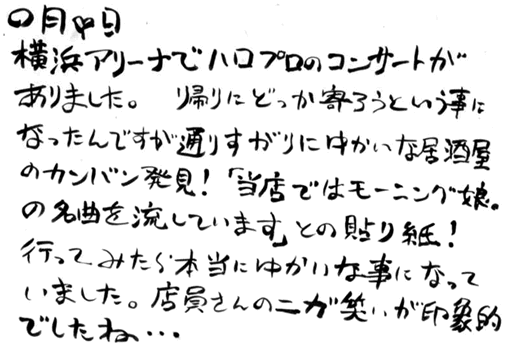 ○月中日
横浜アリーナでハロプロのコンサートが
ありました。 帰りにどっか寄ろうという事に
なったんですが通りすがりにゆかいな居酒屋
のカンバン発見!「当店ではモーニング娘。
の名曲を流しています」との貼り紙!
行ってみたら本当にゆかいな事になって
いました。店員さんのニガ笑いが印象的
でしたね…